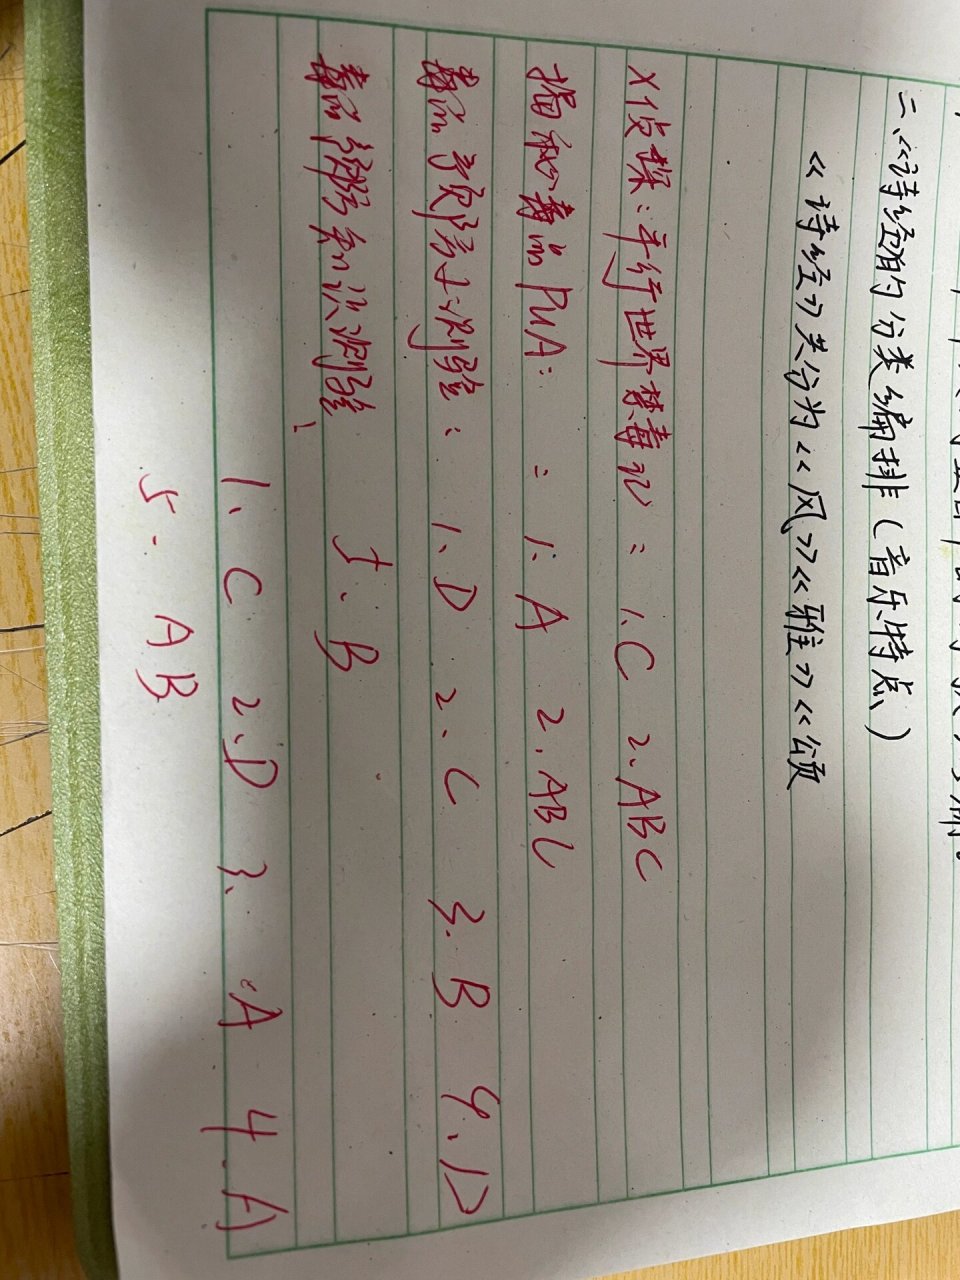 二、《诗经》的分类编排(音乐特点)
《诗经》共分为《风》《雅》《颂
X侦探:平行世界禁毒记: 1.C 2.ABC
揭秘毒品PUA: : 1. A 2. ABC
毒品 测验: 1. D 2. C 3. B 4. D
5. B
毒品 知识测验:
1. C 2. D 3. A 4. A
5. AB